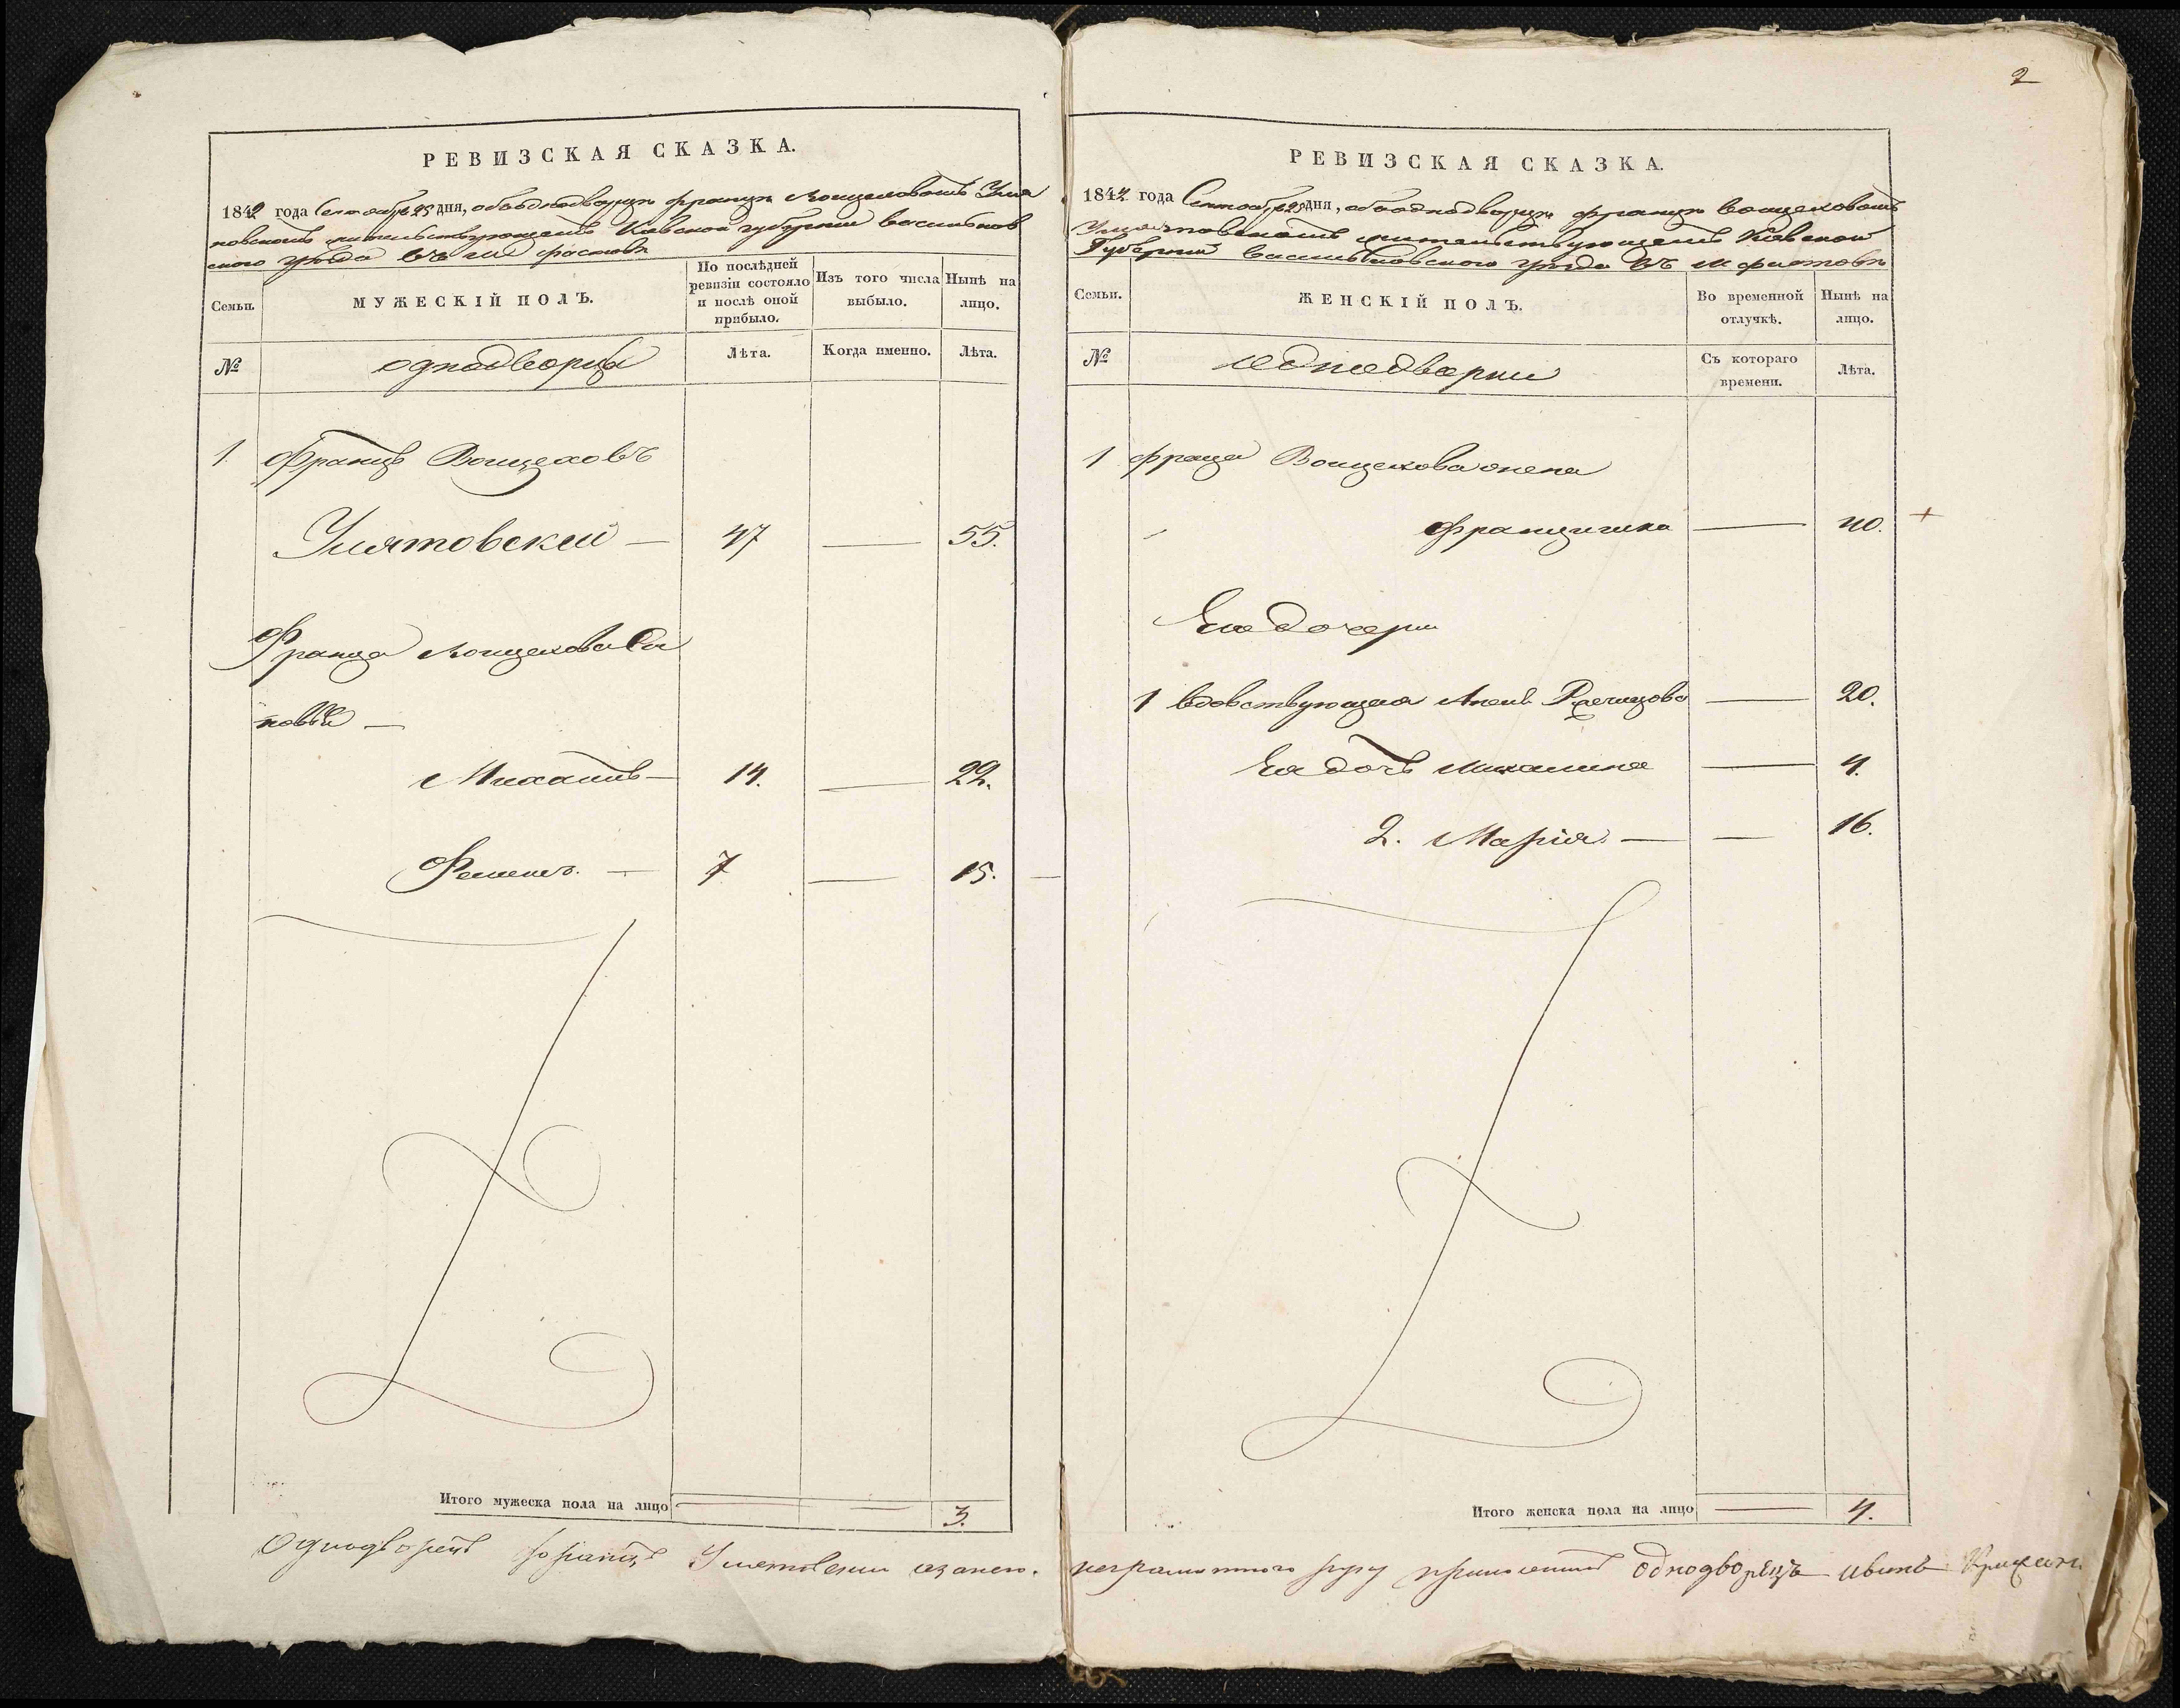 РЕВИЗСКАЯ СКАЗКА.
1842 года Сентября 25 дня, объ однодворцѣ Францѣ Войцеховомъ Уля
товскомъ жительствующемъ Кіевской губерніи Васильков
скаго уѣзда въ м. Фастовѣ
Семьи.
МУЖЕСКІЙ ПОЛЪ.
По послѣдней ревизіи состояло и послѣ оной прибыло.
Изъ того числа выбыло.
Нынѣ на лицо.
№
однодворцы
Лѣта.
Когда именно.
Лѣта.
1. Францъ Войцеховъ
Улятовскій — 47 — 55.
Франца Войцехова Сы
новья —
Михаилъ — 14. — 22.
7 — 15. —
Итого мужеска пола на лицо — — 3.
Однодворецъ Францъ Улятовскій а за него
2
РЕВИЗСКАЯ СКАЗКА.
1842 года Сентября 25 дня, объ однодворцѣ Францѣ Войцеховомъ
Улятовскомъ жительствующемъ Кіевской
Губерніи Васильковскаго уѣзда въ м. Фастовѣ
Семьи.
ЖЕНСКІЙ ПОЛЪ.
Во временной отлучкѣ.
Нынѣ на лицо.
№
однодворки
Съ котораго времени.
Лѣта.
1 Франца Войцехова жена
Францишка — 40. +
Его дочери
1 вдовствующая — 20.
Ея дочь Михалина — 4.
2. Марія — — 16.
Итого женска пола на лицо — 4.
неграмотнаго руку приложилъ однодворецъ